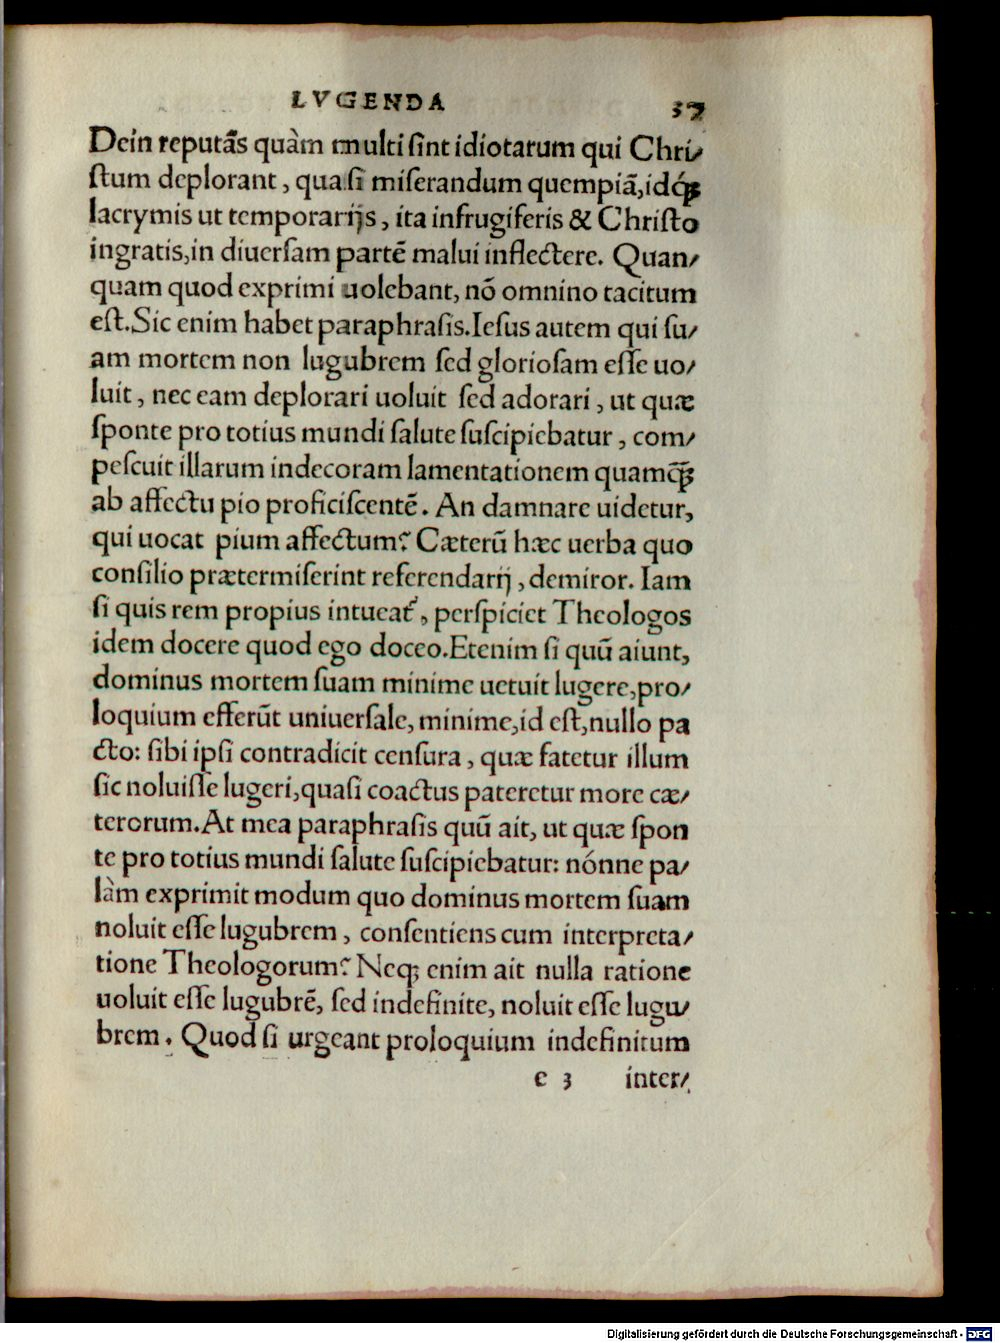 LVGENDA 37
Dein reputãs quàm multi ſint idiotarum qui Chri/
ſtum deplorant, quaſi miſerandum quempiã, idq́ꝫ
lacrymis ut temporarijs, ita infrugiferis & Chriſto
ingratis, in diuerſam partẽ malui inflectere. Quan/
quam quod exprimi uolebant, nõ omnino tacitum
eſt. Sic enim habet paraphraſis. Ieſus autem qui ſu/
am mortem non lugubrem ſed glorioſam eſſe uo/
luit, nec eam deplorari uoluit ſed adorari, ut quæ
ſponte pro totius mundi ſalute ſuſcipiebatur, com/
peſcuit illarum indecoram lamentationem quamq̃ꝫ
ab affectu pio proficiſcentẽ. An damnare uidetur,
qui uocat pium affectum? Cæterũ hæc uerba quo
conſilio prætermiſerint referendarij, demiror. Iam
ſi quis rem propius intueat᷑, perſpiciet Theologos
idem docere quod ego doceo. Etenim ſi quũ aiunt,
dominus mortem ſuam minime uetuit lugere, pro/
loquium efferũt uniuerſale, minime, id eſt, nullo pa
cto: ſibi ipſi contradicit cenſura, quæ fatetur illum
ſic noluiſſe lugeri, quaſi coactus pateretur more cæ/
terorum. At mea paraphraſis quũ ait, ut quæ ſpon
te pro totius mundi ſalute ſuſcipiebatur: nónne pa/
làm exprimit modum quo dominus mortem ſuam
noluit eſſe lugubrem, conſentiens cum interpreta/
tione Theologorum? Neqꝫ enim ait nulla ratione
uoluit eſſe lugubrẽ, ſed indefinite, noluit eſſe lugu/
brem. Quod ſi urgeant proloquium indefinitum
e 3 inter/
Digitalisierung gefördert durch die Deutsche Forschungsgemeinschaft - DFG